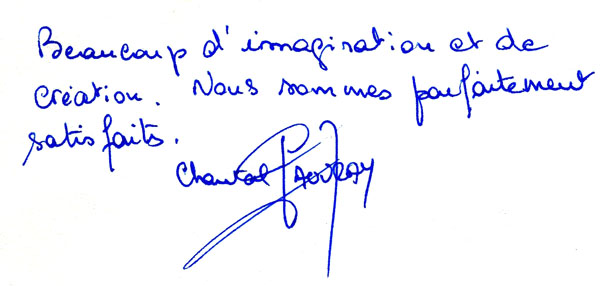 Beaucoup d'imagination et de
création. Nous sommes parfaitement
satisfaits.
Chantal AUVRAY